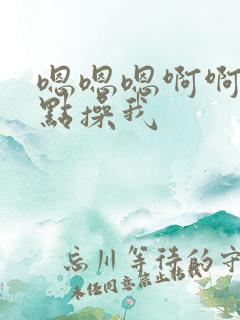 嗯嗯嗯啊啊
點操我
忘川等待的守
未任同意禁止转载